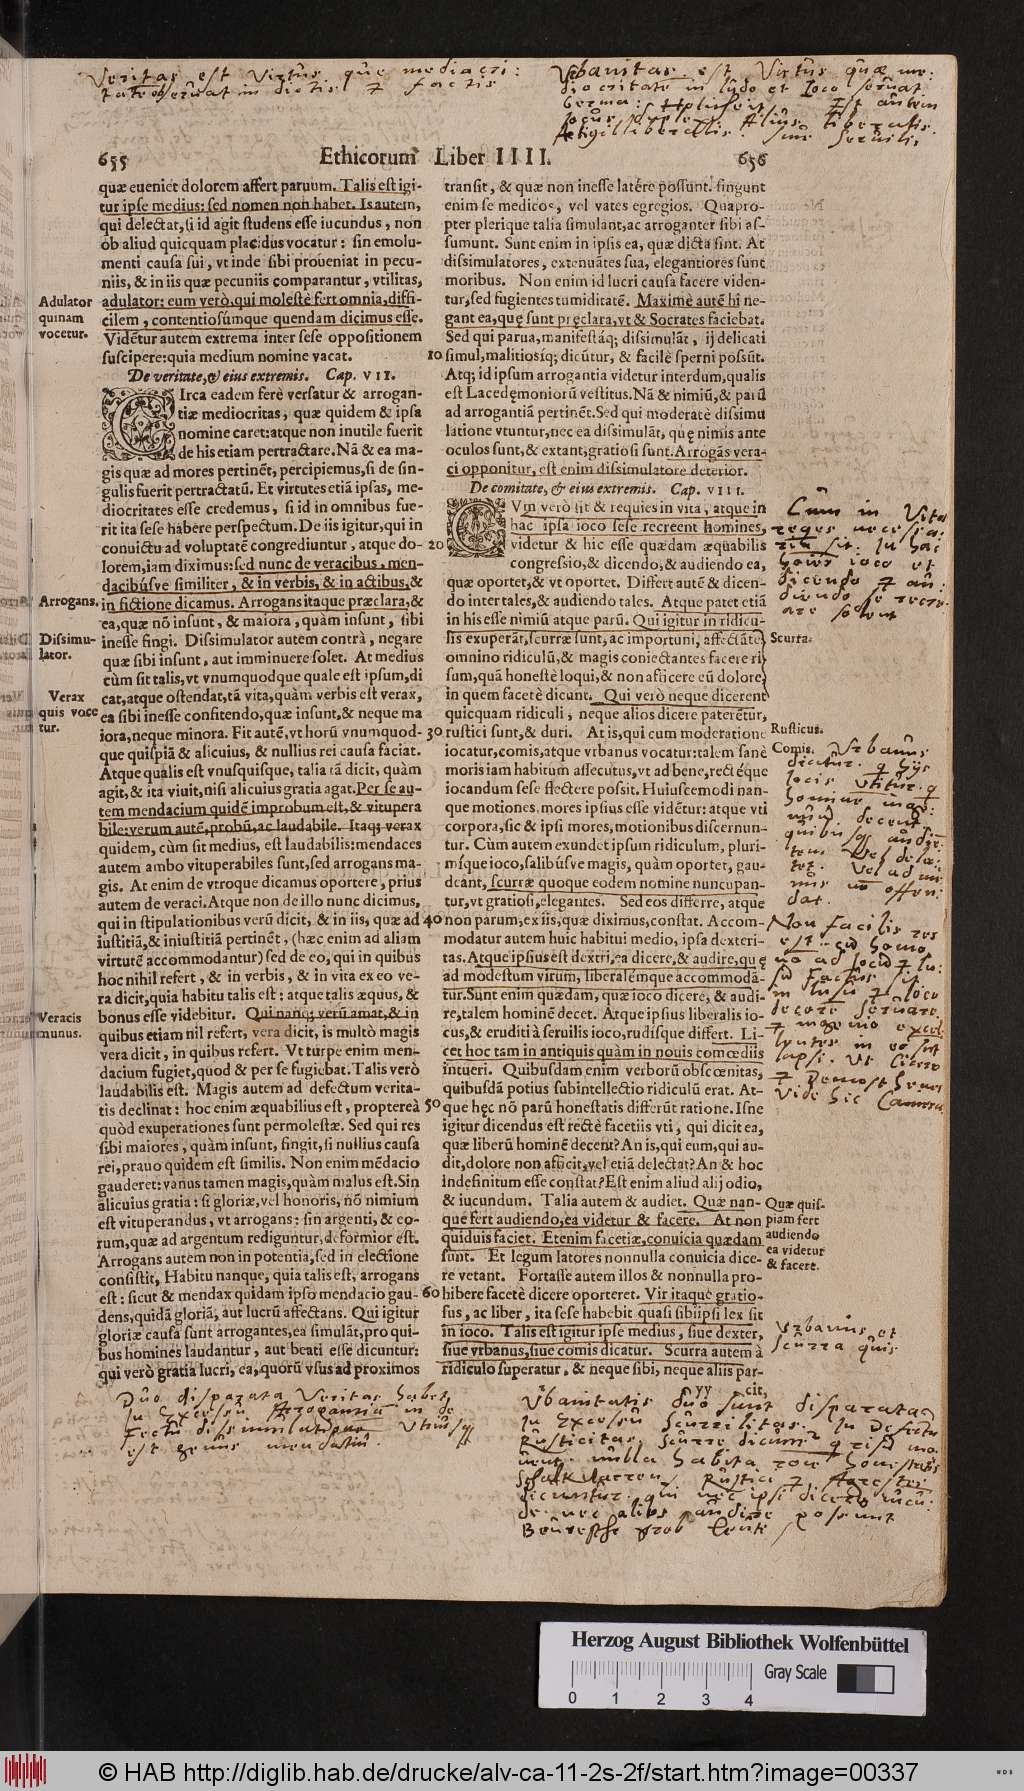 Veritas est Virtus quæ mediocri:
tate observat in dictis et factis
Vrbanitas est Virtus quæ me:
diocritate in ludo et Ioco servat
655
Ethicorum Liber IIII.
656
quæ eueniet dolorem affert paruum. Talis est igi-
tur ipse medius: sed nomen non habet. Is autem,
qui delectat, si id agit studens esse iucundus, non
ob aliud quicquam placidus vocatur: sin emolu-
menti causa sui, vt inde sibi proueniat in pecu-
niis, & in iis quæ pecuniis comparantur, vtilitas,
Adulator
quinam
vocetur.
adulator: eum verò, qui molestè fert omnia, diffi-
cilem, contentiosúmque quendam dicimus esse.
Vidētur autem extrema inter sese oppositionem
suscipere: quia medium nomine vacat.
De veritate, & eius extremis. Cap. VII.
CIrca eadem ferè versatur & arrogan-
tiæ mediocritas, quæ quidem & ipsa
nomine caret: atque non inutile fuerit
de his etiam pertractare. Nā & ea ma-
gis quæ ad mores pertinēt, percipiemus, si de sin-
gulis fuerit pertractatū. Et virtutes etiā ipsas, me-
diocritates esse credemus, si id in omnibus fue-
rit ita sese habere perspectum. De iis igitur, qui in
conuictu ad voluptatē congrediuntur, atque do-
lorem, iam diximus: sed nunc de veracibus, men-
dacibúsve similiter, & in verbis, & in actibus, &
Arrogans.
in fictione dicamus. Arrogans itaque præclara, &
ea, quæ nō insunt, & maiora, quàm insunt, sibi
Dissimu-
lator.
inesse fingi. Dissimulator autem contrà, negare
quæ sibi insunt, aut imminuere solet. At medius
cùm sit talis, vt vnumquodque quale est ipsum, di
Verax
quis voce
tur.
cat, atque ostendat, tā vita, quàm verbis est verax,
ea sibi inesse confitendo, quæ insunt, & neque ma
iora, neque minora. Fit autē, vt horū vnumquod-
que quispiā & alicuius, & nullius rei causa faciat.
Atque qualis est vnusquisque, talia tā dicit, quàm
agit, & ita viuit, nisi alicuius gratia agat. Per se au-
tem mendacium quidē improbum est, & vitupera
bile: verum autē, probū, ac laudabile. Itaq; verax
quidem, cùm sit medius, est laudabilis: mendaces
autem ambo vituperabiles sunt, sed arrogans ma-
gis. At enim de vtroque dicamus oportere, prius
autem de veraci. Atque non de illo nunc dicimus,
qui in stipulationibus verū dicit, & in iis, quæ ad
iustitiā, & iniustitiā pertinēt, (hæc enim ad aliam
virtutē accommodantur) sed de eo, qui in quibus
hoc nihil refert, & in verbis, & in vita ex eo ve-
ra dicit, quia habitu talis est: atque talis æquus, &
Veracis
munus.
bonus esse videbitur. Qui nanq; verū amat, & in
quibus etiam nil refert, vera dicit, is multò magis
vera dicit, in quibus refert. Vt turpe enim men-
dacium fugiet, quod & per se fugiebat. Talis verò
laudabilis est. Magis autem ad defectum verita-
tis declinat: hoc enim æquabilius est, proptereà
quòd exuperationes sunt permolestæ. Sed qui res
sibi maiores, quàm insunt, fingit, si nullius causa
rei, prauo quidem est similis. Non enim mēdacio
gauderet: vanus tamen magis, quàm malus est. Sin
alicuius gratia: si gloriæ, vel honoris, nō nimium
est vituperandus, vt arrogans: sin argenti, & eo-
rum, quæ ad argentum rediguntur, deformior est.
Arrogans autem non in potentia, sed in electione
consistit, Habitu nanque, quia talis est, arrogans
est: sicut & mendax quidam ipso mendacio gau-
dens, quidā gloriā, aut lucrū affectans. Qui igitur
gloriæ causa sunt arrogantes, ea simulāt, pro qui-
bus homines laudantur, aut beati esse dicuntur:
qui verò gratia lucri, ea, quorū vsus ad proximos
transit, & quæ non inesse latére possunt. fingunt
enim se medicos, vel vates egregios. Quapro-
pter plerique talia simulant, ac arroganter sibi as-
sumunt. Sunt enim in ipsis ea, quæ dicta sint. At
dissimulatores, extenuātes sua, elegantiores sunt
moribus. Non enim id lucri causa facere viden-
tur, sed fugientes tumiditatē. Maximè autē hi ne-
gant ea, quę sunt pręclara, vt & Socrates faciebat.
Sed qui parua, manifestáq; dissimulāt, ij delicati
10 simul, malitiosíq; dicūtur, & facilè sperni possūt.
Atq; id ipsum arrogantia videtur interdum, qualis
est Lacedęmoniorū vestitus. Nā & nimiū, & parū
ad arrogantiā pertinēt. Sed qui moderatè dissimu
latione vtuntur, nec ea dissimulāt, quę nimis ante
oculos sunt, & extant, gratiosi sunt. Arrogās vera-
ci opponitur, est enim dissimulatore deterior.
De comitate, & eius extremis. Cap. VIII.
CVm verò sit & requies in vita, atque in
hac ipsa ioco sese recreent homines,
20 videtur & hic esse quædam æquabilis
congressio, & dicendo, & audiendo ea,
quæ oportet, & vt oportet. Differt autē & dicen-
do inter tales, & audiendo tales. Atque patet etiā
in his esse nimiū atque parū. Qui igitur in ridicu-
Scurra.
lis exuperāt, scurræ sunt, ac importuni, affectātes
omnino ridiculū, & magis coniectantes facere ri
sum, quā honestè loqui, & non afficere eū dolore,
in quem facetè dicunt. Qui verò neque dicerent
quicquam ridiculi, neque alios dicere paterētur,
Rusticus.
30 rustici sunt, & duri. At is, qui cum moderatione
Comis.
iocatur, comis, atque vrbanus vocatur: talem sanè
moris iam habitum assecutus, vt ad bene, rectéque
iocandum sese flectere possit. Huiuscemodi nan-
que motiones. mores ipsius esse vidētur: atque vti
corpora, sic & ipsi mores, motionibus discernun-
tur. Cùm autem exundet ipsum ridiculum, pluri-
míque ioco, salibúsve magis, quàm oportet, gau-
deānt, scurræ quoque eodem nomine nuncupan-
tur, vt gratiosi, elegantes. Sed eos differre, atque
40 non parum, ex iis, quæ diximus, constat. Accom-
modatur autem huic habitui medio, ipsa dexteri-
tas. Atque ipsius est dextri, ea dicere, & audire, quę
ad modestum virum, liberalémque accommodā-
tur. Sunt enim quædam, quæ ioco dicere, & audi-
re, talem hominē decet. Atque ipsius liberalis io-
cus, & eruditi à seruilis ioco, rudísque differt. Li-
cet hoc tam in antiquis quàm in nouis comœdiis
intueri. Quibusdam enim verborū obscœnitas,
quibusdā potius subintellectio ridiculū erat. At-
50 que hęc nō parū honestatis differūt ratione. Isne
igitur dicendus est rectè facetiis vti, qui dicit ea,
quæ liberū hominē decent? An is, qui eum, qui au-
dit, dolore non afficit, vel etiā delectat? An & hoc
indefinitum esse constat? Est enim aliud alij odio,
& iucundum. Talia autem & audiet. Quæ nan-
Quæ quis-
piam fert
audiendo
ea videtur
& facere.
que fert audiendo, ea videtur & facere. At non
quiduis faciet. Etenim facetiæ, conuicia quædam
sunt. Et legum latores nonnulla conuicia dice-
re vetant. Fortasse autem illos & nonnulla pro-
60 hibere facetè dicere oporteret. Vir itaque gratio-
sus, ac liber, ita sese habebit quasi sibiipsi lex sit
in ioco. Talis est igitur ipse medius, siue dexter,
siue vrbanus, siue comis dicatur. Scurra autem à
ridiculo superatur, & neque sibi, neque aliis par-
yy cit,
Cum in Vita
Vrbanus et
scurra quis
Duo disparata Veritas habet,
In Excessu Arrogantia in de
fectu dissimulatio
est genus mendatiū.
Vrbanitatis duo sunt disparata
In Excessu Scurrilitas. In Defectu
Rusticitas.
Herzog August Bibliothek Wolfenbüttel
Gray Scale
0 1 2 3 4
© HAB http://diglib.hab.de/drucke/alv-ca-11-2s-2f/start.htm?image=00337